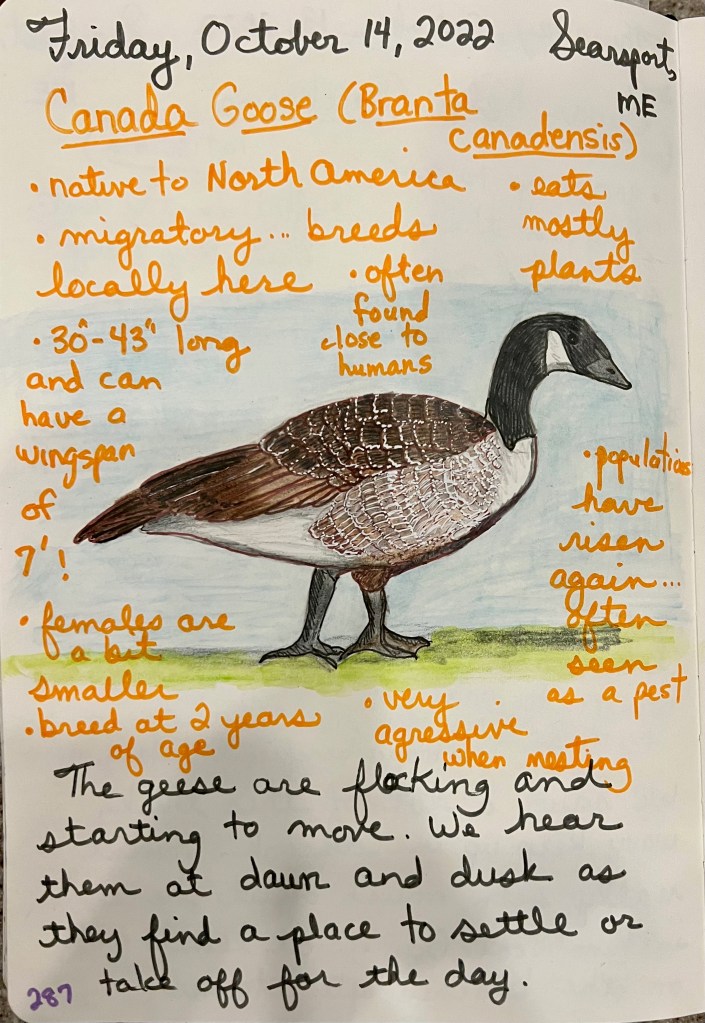 Friday, October 14, 2022
Searsport,
ME
Canada Goose (Branta
canadensis)
• native to North America
• migratory... breeds
locally here
• eats
mostly
plants
• often
found
close to
humans
• 30"-43" long
and can
have a
wingspan
of
7'!
• populations
have
risen
again...
often
seen
as a pest
• females are
a bit
smaller
• breed at 2 years
of age
• very
agressive
when nesting
The geese are flocking and
starting to move. We hear
them at dawn and dusk as
they find a place to settle or
take off for the day.
287